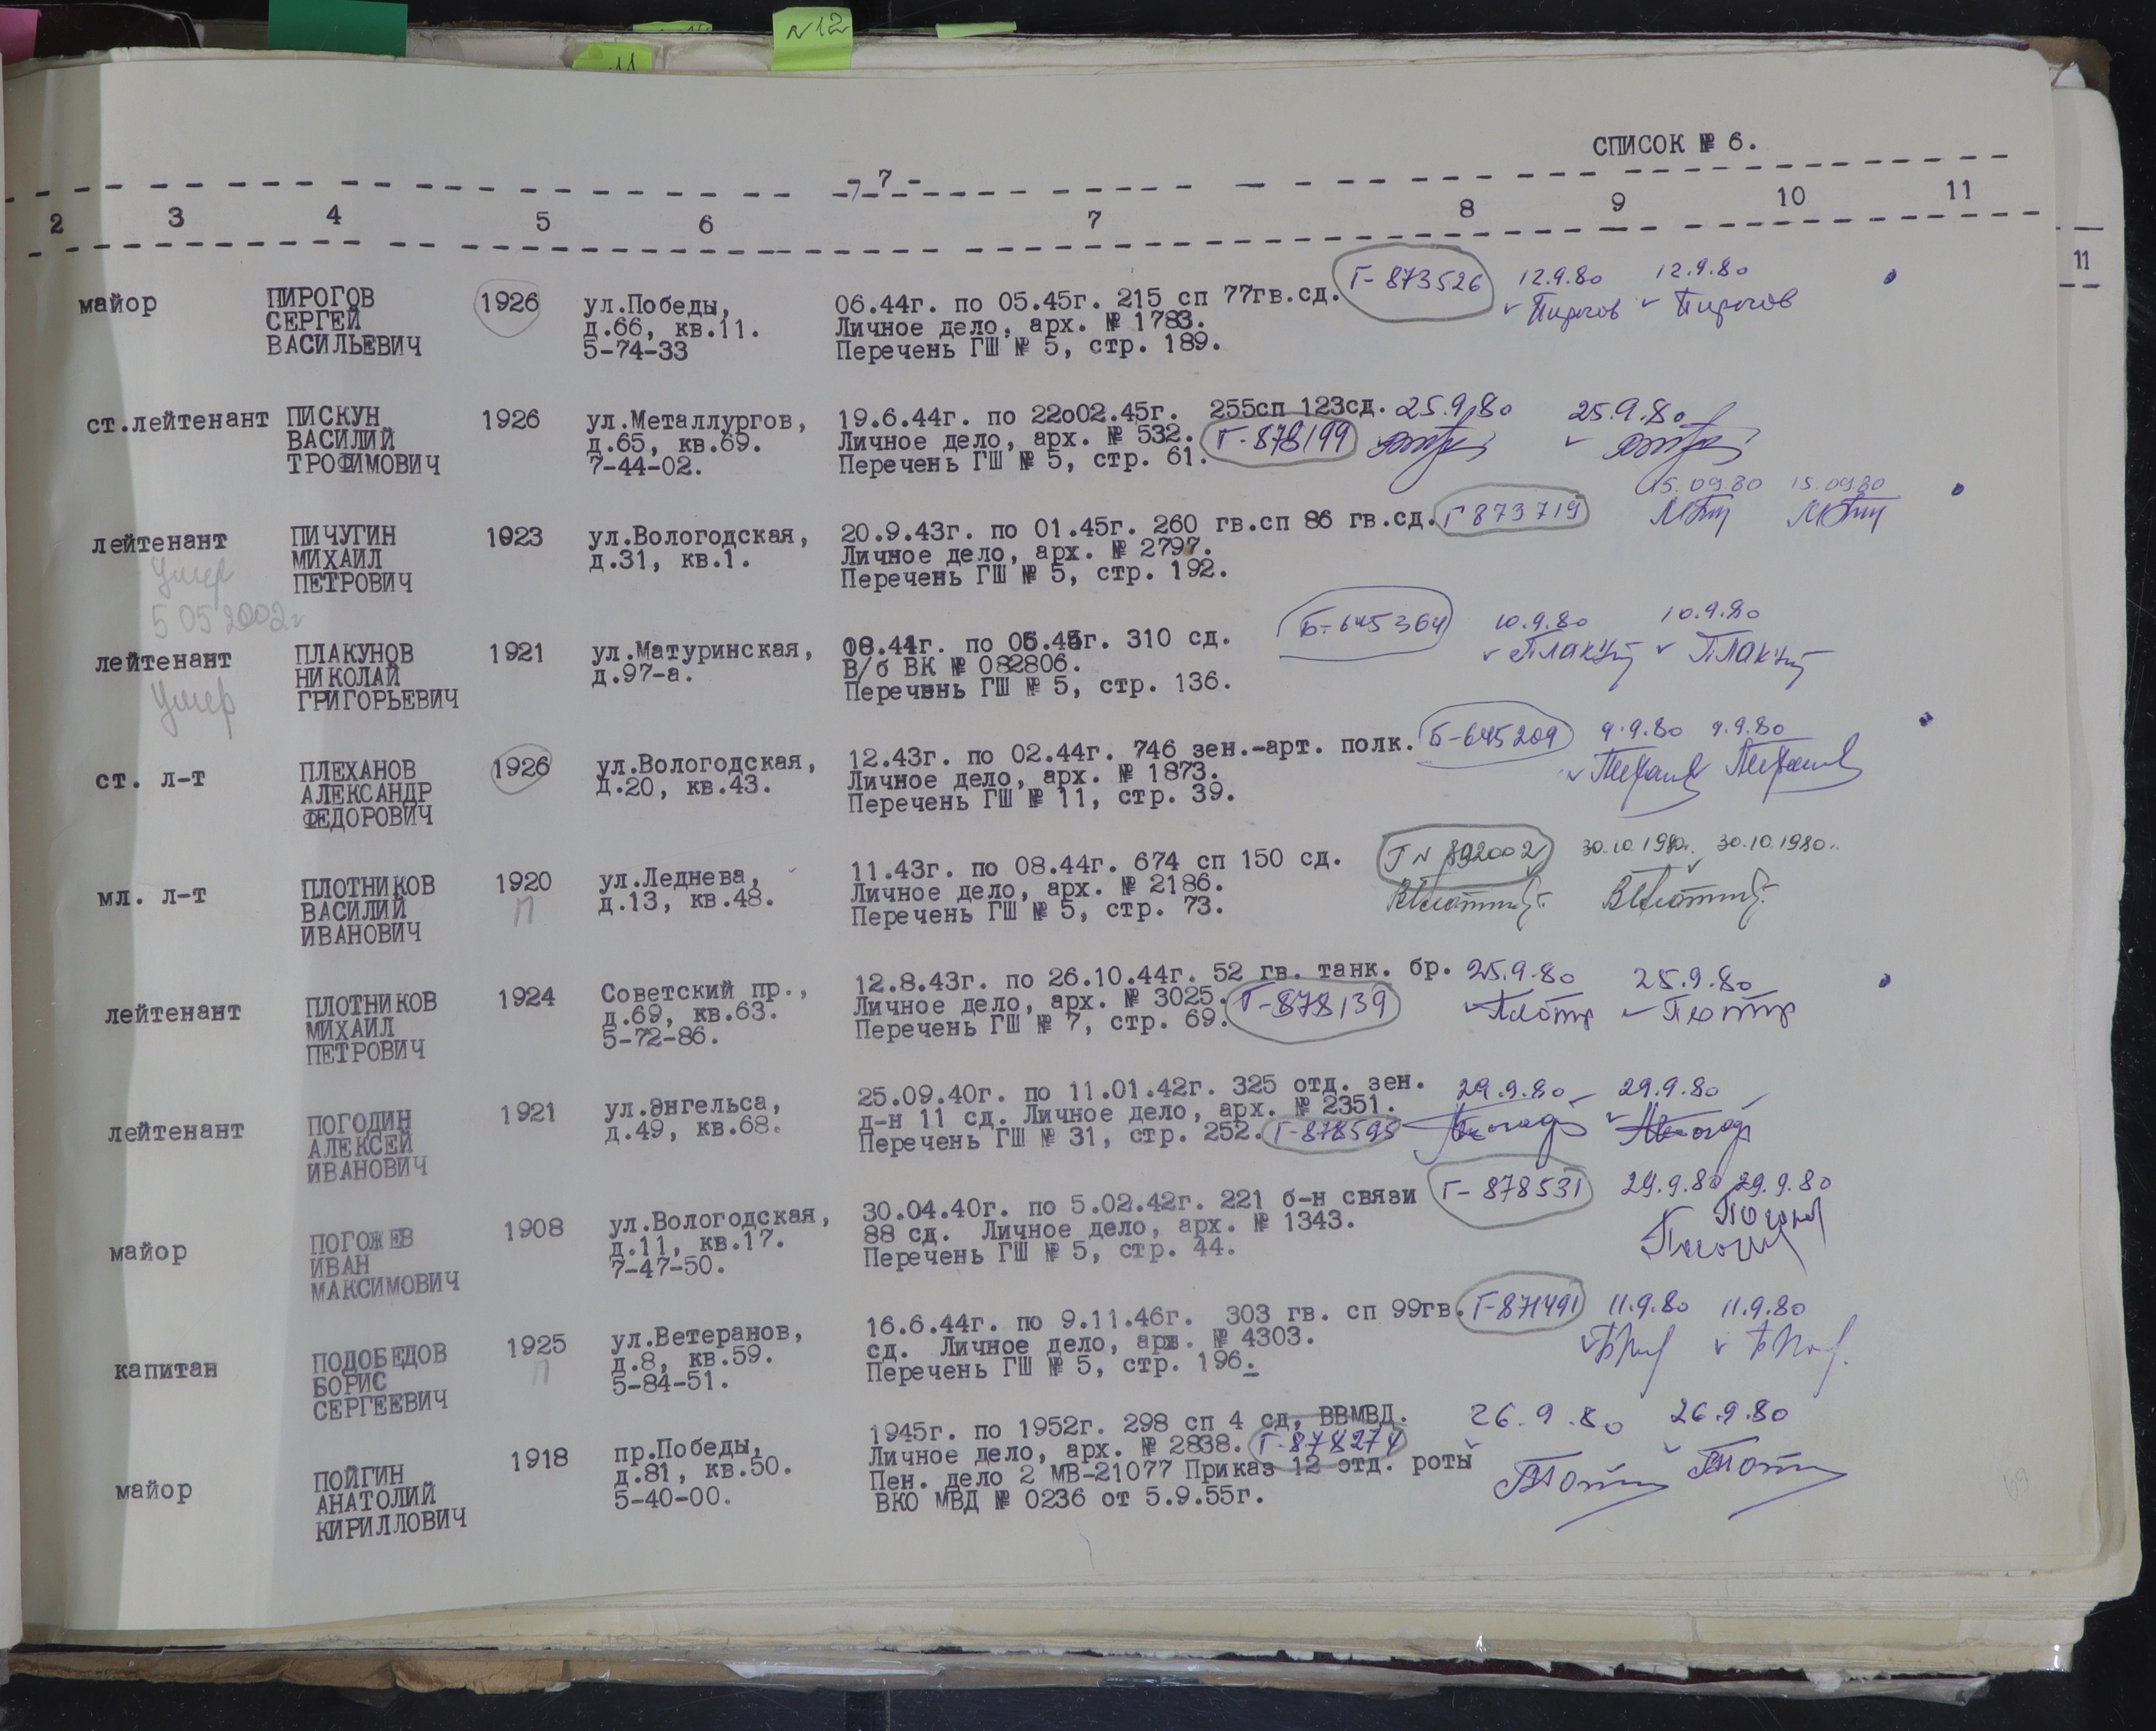 N12
11
СПИСОК № 6.
- 7 -
2 3 4 5 6 7 8 9 10 11
11
майор ПИРОГОВ 1926 ул.Победы, 06.44г. по 05.45г. 215 сп 77гв.сд. Г-873526 12.9.80 12.9.80
СЕРГЕЙ д.66, кв.11. Личное дело, арх. № 1783. Пирогов Пирогов
ВАСИЛЬЕВИЧ 5-74-33 Перечень ГШ № 5, стр. 189.
ст.лейтенант ПИСКУН 1926 ул.Металлургов, 19.6.44г. по 22о02.45г. 255сп 123сд. 25.9.80 25.9.80
ВАСИЛИЙ д.65, кв.69. Личное дело, арх. № 532. Г-878199
ТРОФИМОВИЧ 7-44-02. Перечень ГШ № 5, стр. 61.
лейтенант ПИЧУГИН 1923 ул.Вологодская, 20.9.43г. по 01.45г. 260 гв.сп 86 гв.сд. Г 873719 15.09.80 15.09.80
умер МИХАИЛ д.31, кв.1. Личное дело, арх. № 2797.
5 05 2002г ПЕТРОВИЧ Перечень ГШ № 5, стр. 192.
лейтенант ПЛАКУНОВ 1921 ул.Матуринская, 08.44г. по 05.45г. 310 сд. Б-645364 10.9.80 10.9.80
умер НИКОЛАЙ д.97-а. В/б ВК № 082806.
ГРИГОРЬЕВИЧ Перечень ГШ № 5, стр. 136.
ст. л-т ПЛЕХАНОВ 1926 ул.Вологодская, 12.43г. по 02.44г. 746 зен.-арт. полк. Б-645209 9.9.80 9.9.80
АЛЕКСАНДР д.20, кв.43. Личное дело, арх. № 1873.
ФЕДОРОВИЧ Перечень ГШ № 11, стр. 39.
мл. л-т ПЛОТНИКОВ 1920 ул.Леднева, 11.43г. по 08.44г. 674 сп 150 сд. Г N 892002 30.10.1980г. 30.10.1980г.
ВАСИЛИЙ П д.13, кв.48. Личное дело, арх. № 2186.
ИВАНОВИЧ Перечень ГШ № 5, стр. 73.
лейтенант ПЛОТНИКОВ 1924 Советский пр., 12.8.43г. по 26.10.44г. 52 гв. танк. бр. 25.9.80 25.9.80
МИХАИЛ д.69, кв.63. Личное дело, арх. № 3025. Г-878139
ПЕТРОВИЧ 5-72-86. Перечень ГШ № 7, стр. 69.
лейтенант ПОГОДИН 1921 ул.Энгельса, 25.09.40г. по 11.01.42г. 325 отд. зен. 29.9.80 29.9.80
АЛЕКСЕЙ д.49, кв.68. д-н 11 сд. Личное дело, арх. № 2351.
ИВАНОВИЧ Перечень ГШ № 31, стр. 252. Г-878595
майор ПОГОЖЕВ 1908 ул.Вологодская, 30.04.40г. по 5.02.42г. 221 б-н связи Г-878531 29.9.80 29.9.80
ИВАН д.11, кв.17. 88 сд. Личное дело, арх. № 1343.
МАКСИМОВИЧ 7-47-50. Перечень ГШ № 5, стр. 44.
капитан ПОДОБЕДОВ 1925 ул.Ветеранов, 16.6.44г. по 9.11.46г. 303 гв. сп 99гв. Г-871491 11.9.80 11.9.80
БОРИС П д.8, кв.59. сд. Личное дело, арх. № 4303.
СЕРГЕЕВИЧ 5-84-51. Перечень ГШ № 5, стр. 196.
майор ПОЙГИН 1918 пр.Победы, 1945г. по 1952г. 298 сп 4 сд, ВВМВД. 26.9.80 26.9.80
АНАТОЛИЙ д.81, кв.50. Личное дело, арх. № 2838. Г-878274
КИРИЛЛОВИЧ 5-40-00. Пен. дело 2 МВ-21077 Приказ 12 отд. роты
ВКО МВД № 0236 от 5.9.55г.